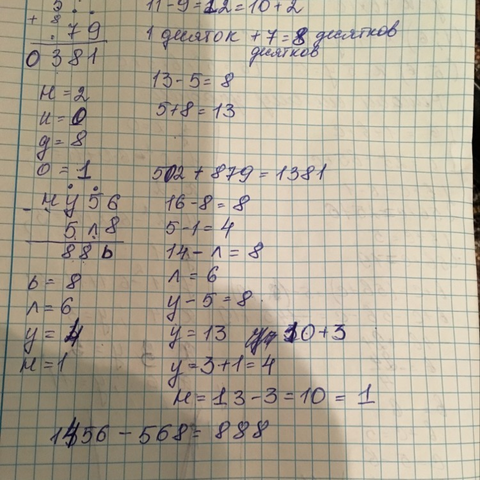 11-9=12=10+2
+ 8
79
1 десяток +7=8 десятков
десятков
0381
13-5=8
н=2
5+8=13
и=0
д=8
о=1
502+879=1381
- нy56
16-8=8
5л8
5-1=4
88ь
14-л=8
ь=8
л=6
л=6
y-5=8
y=4
y=13 y=10+3
н=1
y=3+1=4
н=13-3=10=1
1456-568=888